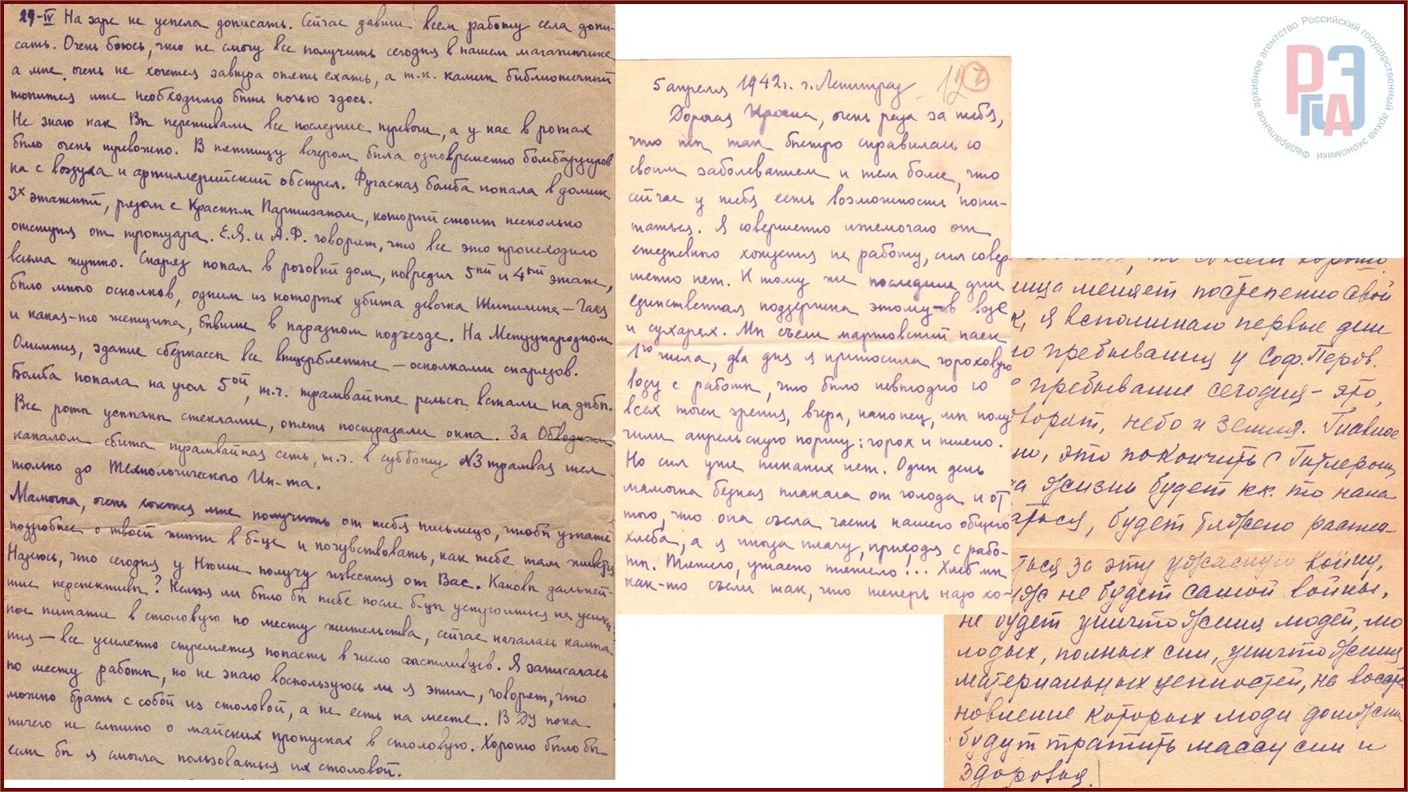 29-IV На заре не успела дописать. Сейчас давши всем работу села допи-
сать. Очень боюсь, что не смогу все получить сегодня в нашем магазинчике
а мне очень не хочется завтра опять ехать, а т.к. камин библиотечный
топится мне необходимо быть ночью здесь.
Не знаю как Вы переживали все последние тревоги, а у нас в ротах
было очень тревожно. В пятницу вечером была одновременно бомбардиров
ка с воздуха и артиллерийский обстрел. Фугасная бомба попала в домик
3х этажный, рядом с Красным Партизаном, который стоит несколько
отступя от тротуара. Е.Я. и А.Ф. говорят, что все это происходило
весьма жутко. Снаряд попал в розовый дом, повредил 5ый и 4ый этажи,
было много осколков, одним из которых убита девочка
и какая-то женщина, бывшие в парадном подъезде. На Международном
Олимпия, здание сберкассы все выщербленные – осколками снарядов.
Бомба попала на угол 5ой, т.ч. трамвайные рельсы встали на дыбы.
Все роты усыпаны стеклами, опять пострадали окна. За Обводным
каналом сбита трамвайная сеть, т.ч. в субботу №3 трамвая шел
только до Технологического Ин-та.
Мамочка, очень хочется мне получить от тебя письмецо, чтобы узнать
подробнее о твоей жизни в б-це и почувствовать, как тебе там живется
Надеюсь, что сегодня у Нюши получу известия от Вас. Каковы дальней-
шие перспективы? Нельзя ли было бы тебе после б-цы устроиться на усилен
ное питание в столовую по месту жительства, сейчас началась кампа-
ния – все усиленно стремятся попасть в число счастливцев. Я записалась
по месту работы, но не знаю воспользуюсь ли я этим, говорят, что
можно брать с собой из столовой, а не есть на месте. В ДУ пока
ничего не слышно о майских пропусках в столовую. Хорошо было бы
если бы я смогла пользоваться их столовой.
12 7
5 апреля 1942г. г. Ленинград
Дорогая, очень рада за тебя,
что ты так быстро справилась со
своим заболеванием и тем более, что
сейчас у тебя есть возможность попи-
таться. Я совершенно изнемогаю от
ежедневного хождения на работу, сил совер-
шенно нет. К тому же последние дни
единственная поддержка этому – в воде
и сухарях. Мы съели мартовский паек
1го числа, два дня я приносила гороховую
воду с работы, что было невыгодно со
всех точек зрения, вчера, наконец, мы полу
чили апрельскую порцию: горох и пшено.
Но сил уже никаких нет. Один день
мамочка бедная плакала от голода и от
того, что она съела часть нашего общего
хлеба, а я тогда плачу, приходя с рабо-
ты. Тяжело, ужасно тяжело!... Хлеб мы
как-то съели так, что теперь надо хо-
меняет постепенно свой
я вспоминаю первые дни
пребывания у Соф. Перов.
пребывание сегодня – это,
говорят, небо и земля. Главное
это покончить с Гитлером,
а жизнь будет кк. то нала
будет блажено распла
за эту ужасную войну,
не будет самой войны,
не будет уничтожения людей, мо
лодых, полных сил, уничтожения
материальных ценностей, на восста
новление которых люди должны
будут тратить массу сил и
здоровья.
Федеральное архивное агентство Российский государственный архив экономики
РГАЭ